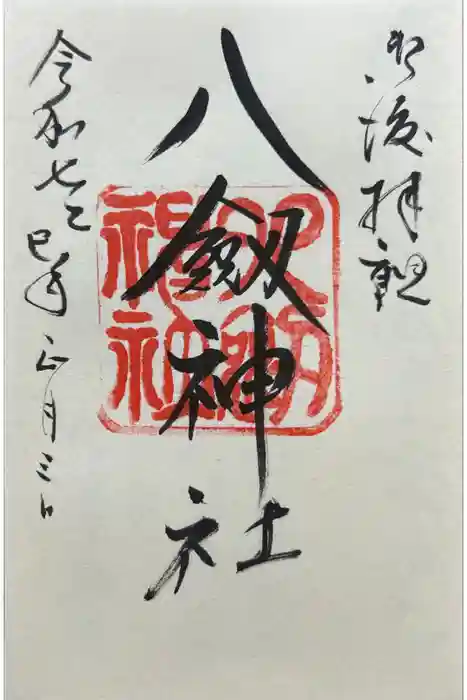 拝
八劔神社
令和七乙巳年正月三日
八劔神社